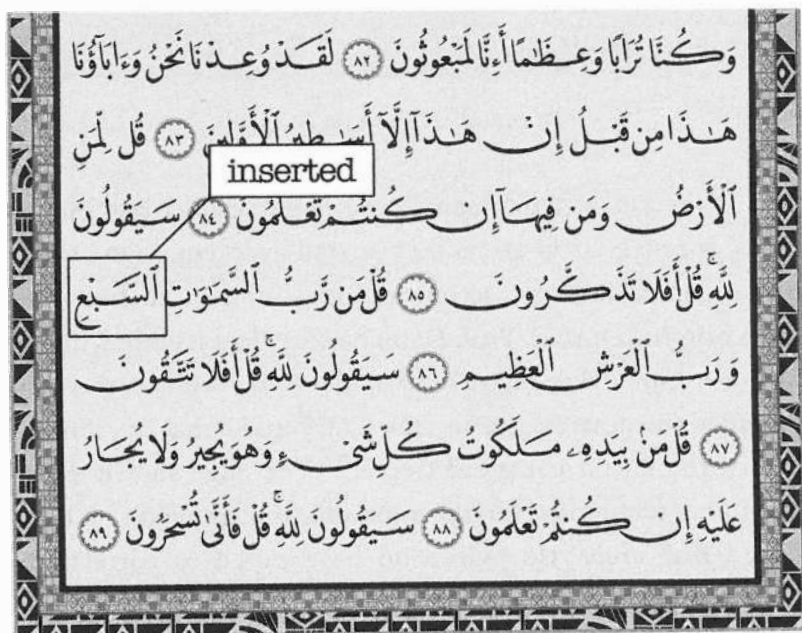 وَكُنَّا تُرَابًا وَعِظَـٰمًا أَءِنَّا لَمَبْعُوثُونَ ٨٢ لَقَدْ وُعِدْنَا نَحْنُ وَءَابَآؤُنَا
هَـٰذَا مِن قَبْلُ إِنْ هَـٰذَآ إِلَّآ أَسَـٰطِيرُ ٱلْأَوَّلِينَ ٨٣ قُل لِّمَنِ
inserted
ٱلْأَرْضُ وَمَن فِيهَآ إِن كُنتُمْ تَعْلَمُونَ ٨٤ سَيَقُولُونَ
لِلَّهِ ۚ قُلْ أَفَلَا تَذَكَّرُونَ ٨٥ قُلْ مَن رَّبُّ ٱلسَّمَـٰوَٰتِ ٱلسَّبْعِ
وَرَبُّ ٱلْعَرْشِ ٱلْعَظِيمِ ٨٦ سَيَقُولُونَ لِلَّهِ ۚ قُلْ أَفَلَا تَتَّقُونَ
٨٧ قُلْ مَنۢ بِيَدِهِۦ مَلَكُوتُ كُلِّ شَىْءٍ وَهُوَ يُجِيرُ وَلَا يُجَارُ
عَلَيْهِ إِن كُنتُمْ تَعْلَمُونَ ٨٨ سَيَقُولُونَ لِلَّهِ ۚ قُلْ فَأَنَّىٰ تُسْحَرُونَ ٨٩